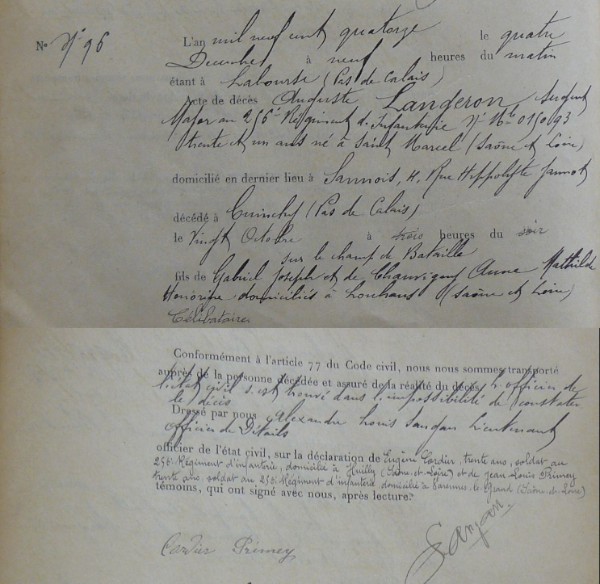 No N° 96
L'an mil neuf cent quatorze le quatre
Décembre à neuf heures du matin
étant à Labourse (Pas de Calais)
Acte de décès Auguste Landeron, Sergent
Major au 256e Régiment d'Infanterie N° Mle 015093
trente et un ans né à Saint Marcel (Saône et Loire)
domicilié en dernier lieu à Sannois, 4, Rue Hippolyte Jamot
décédé à Cuinchy (Pas de Calais)
le Vingt Octobre à trois heures du soir
sur le champ de Bataille
fils de Gabriel Joseph et de Chauvigny Anne Mathilde
Honorine domiciliés à Louhans (Saône et Loire)
Célibataire
Conformément à l'article 77 du Code civil, nous nous sommes transporté
auprès de la personne décédée et assuré de la réalité du décès
l'état civil s'est trouvé dans l'impossibilité de constater l'officier de
le décès
Dressé par nous Alexandre Louis Sanjan Lieutenant
officier de Détails
officier de l'état civil, sur la déclaration de Eugène Cordier, trente ans, soldat au
256e Régiment d'infanterie, domicilié à Huilly (Saône et Loire) et de Jean Louis Primey
trente ans, soldat au 256e Régiment d'infanterie domicilié à le Grand (Saône et Loire)
témoins, qui ont signé avec nous, après lecture.
Cordier Primey